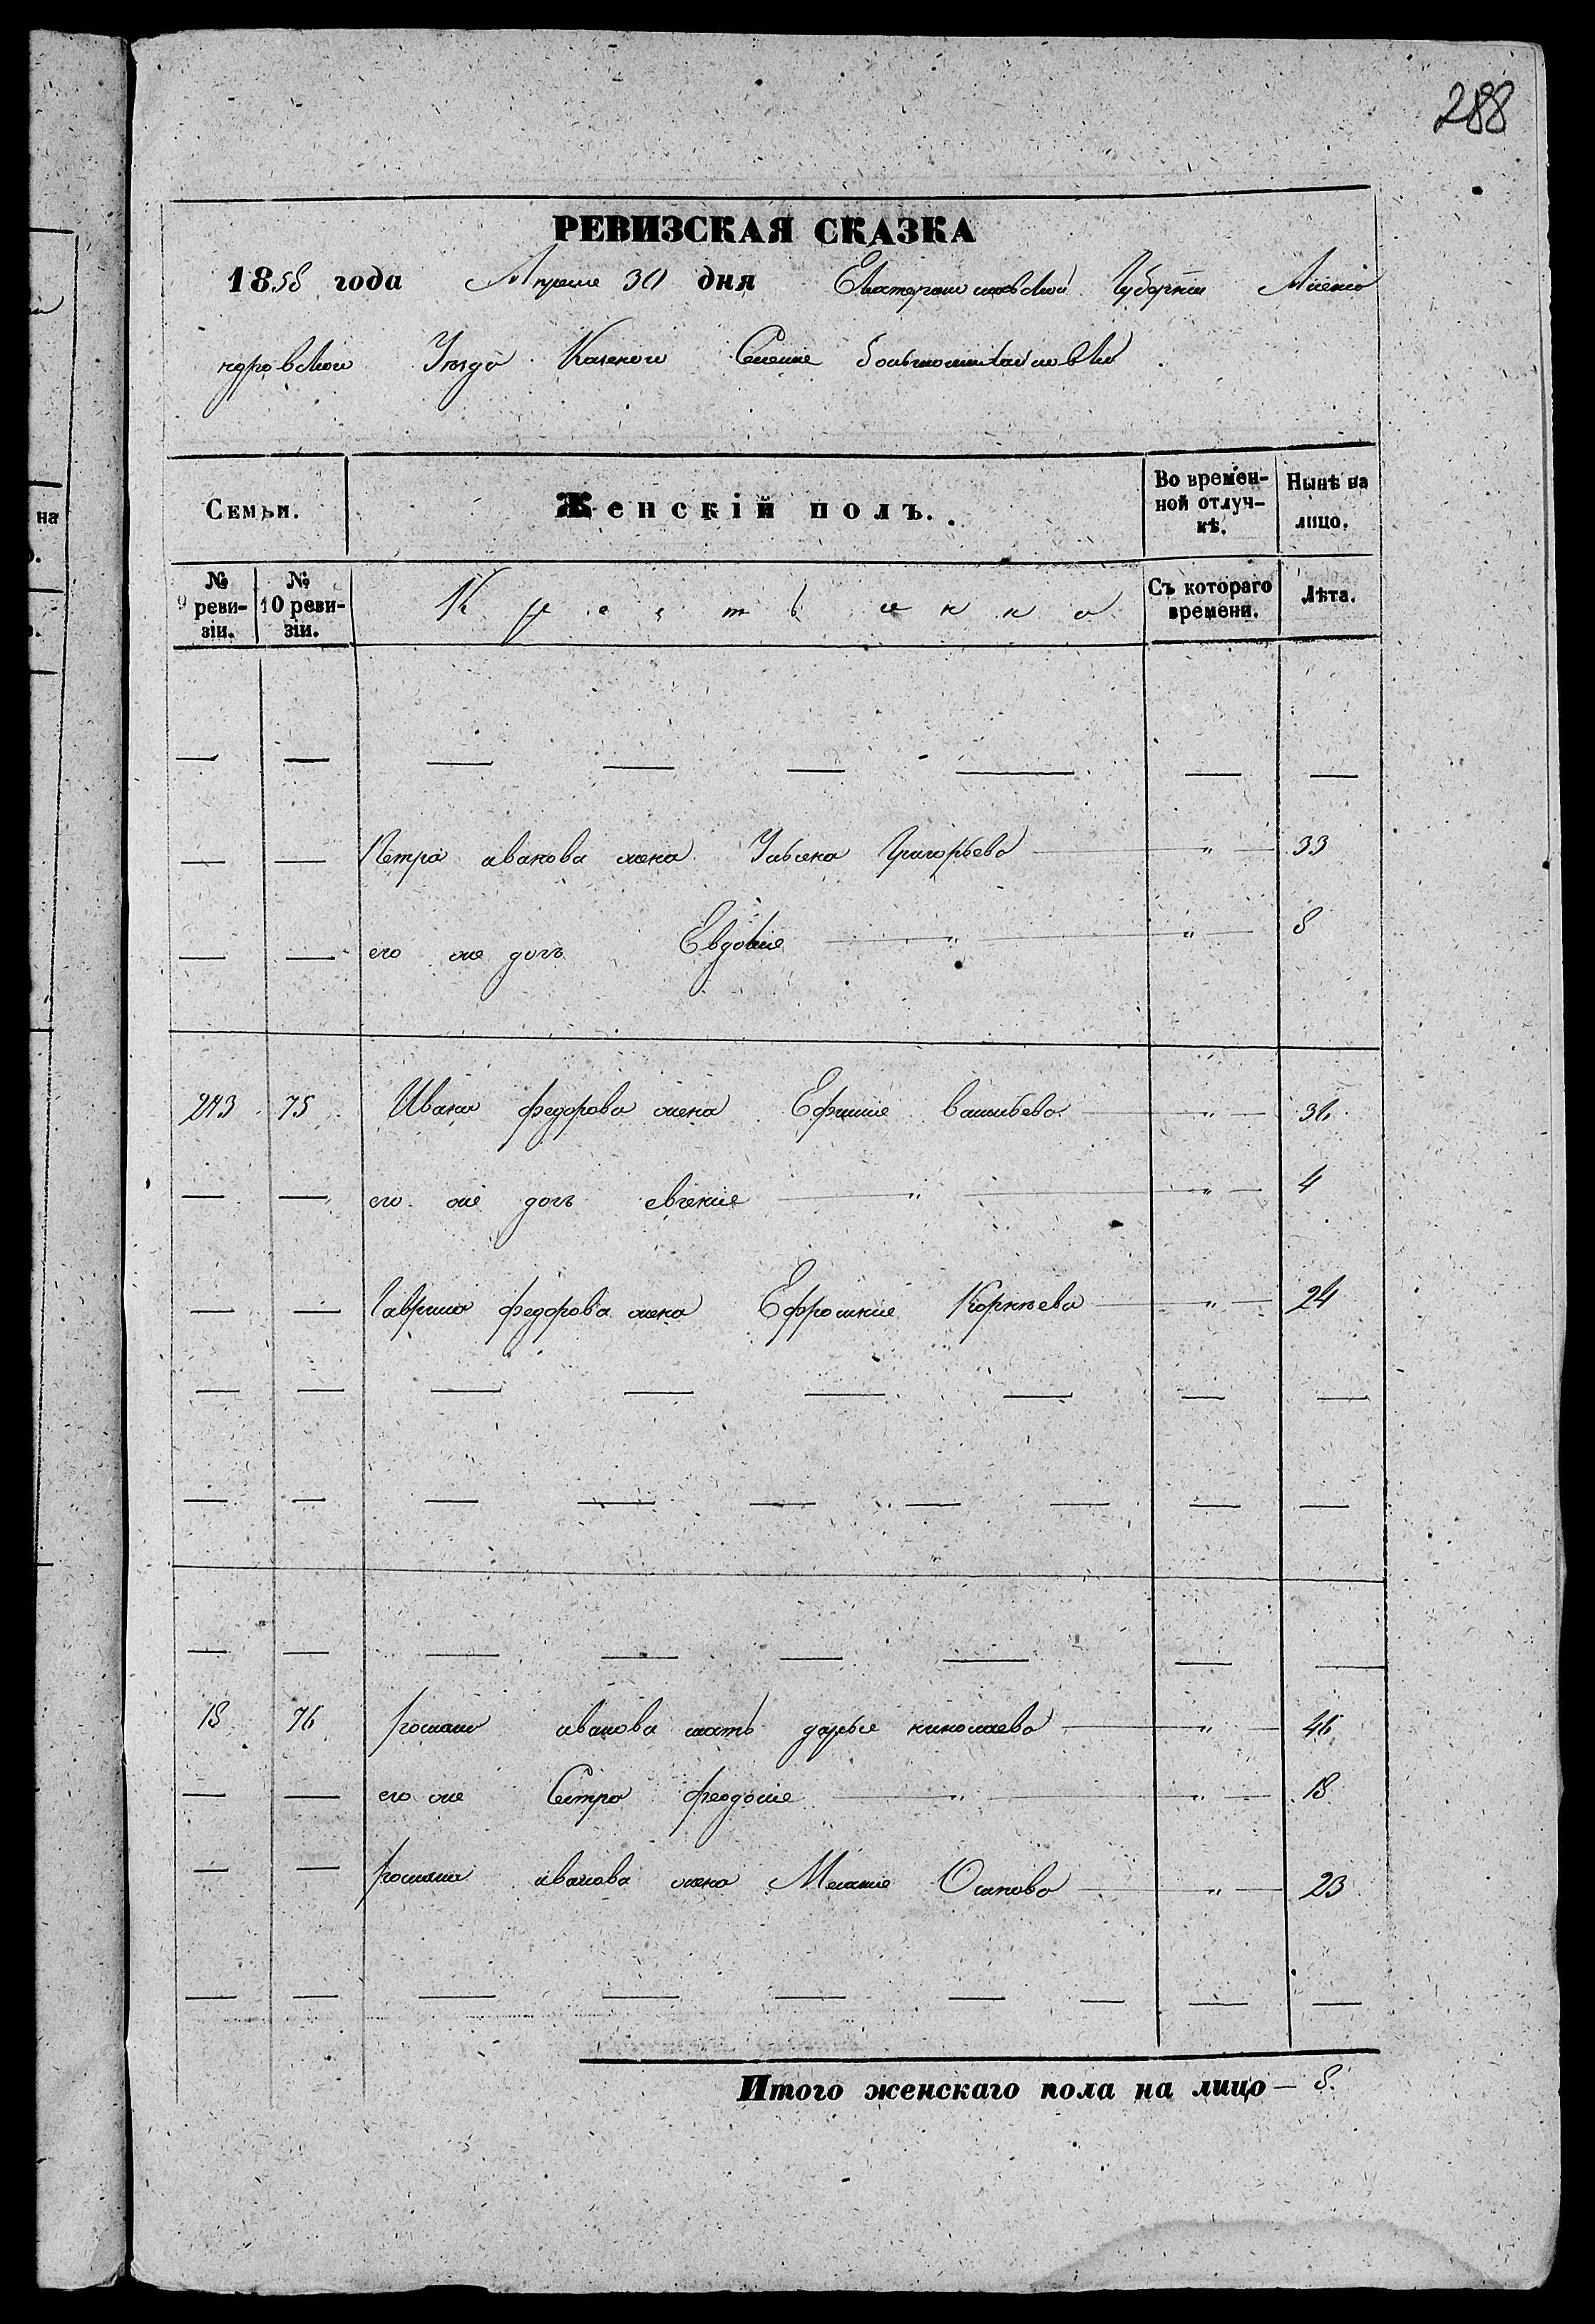 288
РЕВИЗСКАЯ СКАЗКА
1858 года Апреля 30 дня Екатеринославской Губернiи Алексан
дровскаго Уѣзда Казеннаго Селения большемихайловки
на
Семьи. Женскiй полъ. Во времен- Нынѣ на
ной отлуч- лицо.
кѣ.
№ № Крестьянка Съ котораго Лѣта.
9 реви- 10 реви- времени.
зiи. зiи.
— — — — — — — —
— — Петра иванова жена Ульяна Григорьева — " — 33
— — его же дочь Евдокия — " — " — 8
243 75 Ивана федорова жена Ефимия васильева — " — 36
— — его же дочь евгения — " — " — 4
— — Гаврила федорова жена Ефросиния Корнѣева — " — 24
— — — — — — — —
— — — — — — — — —
— — — — — — — —
18 76 романа иванова мать дарья николаева — " — 46
— — его же Сестра феодосия — " — " — 18
— — романа иванова жена Мелания Осипова — " — 23
— — — — — — — — —
Итого женскаго пола на лицо — 8.